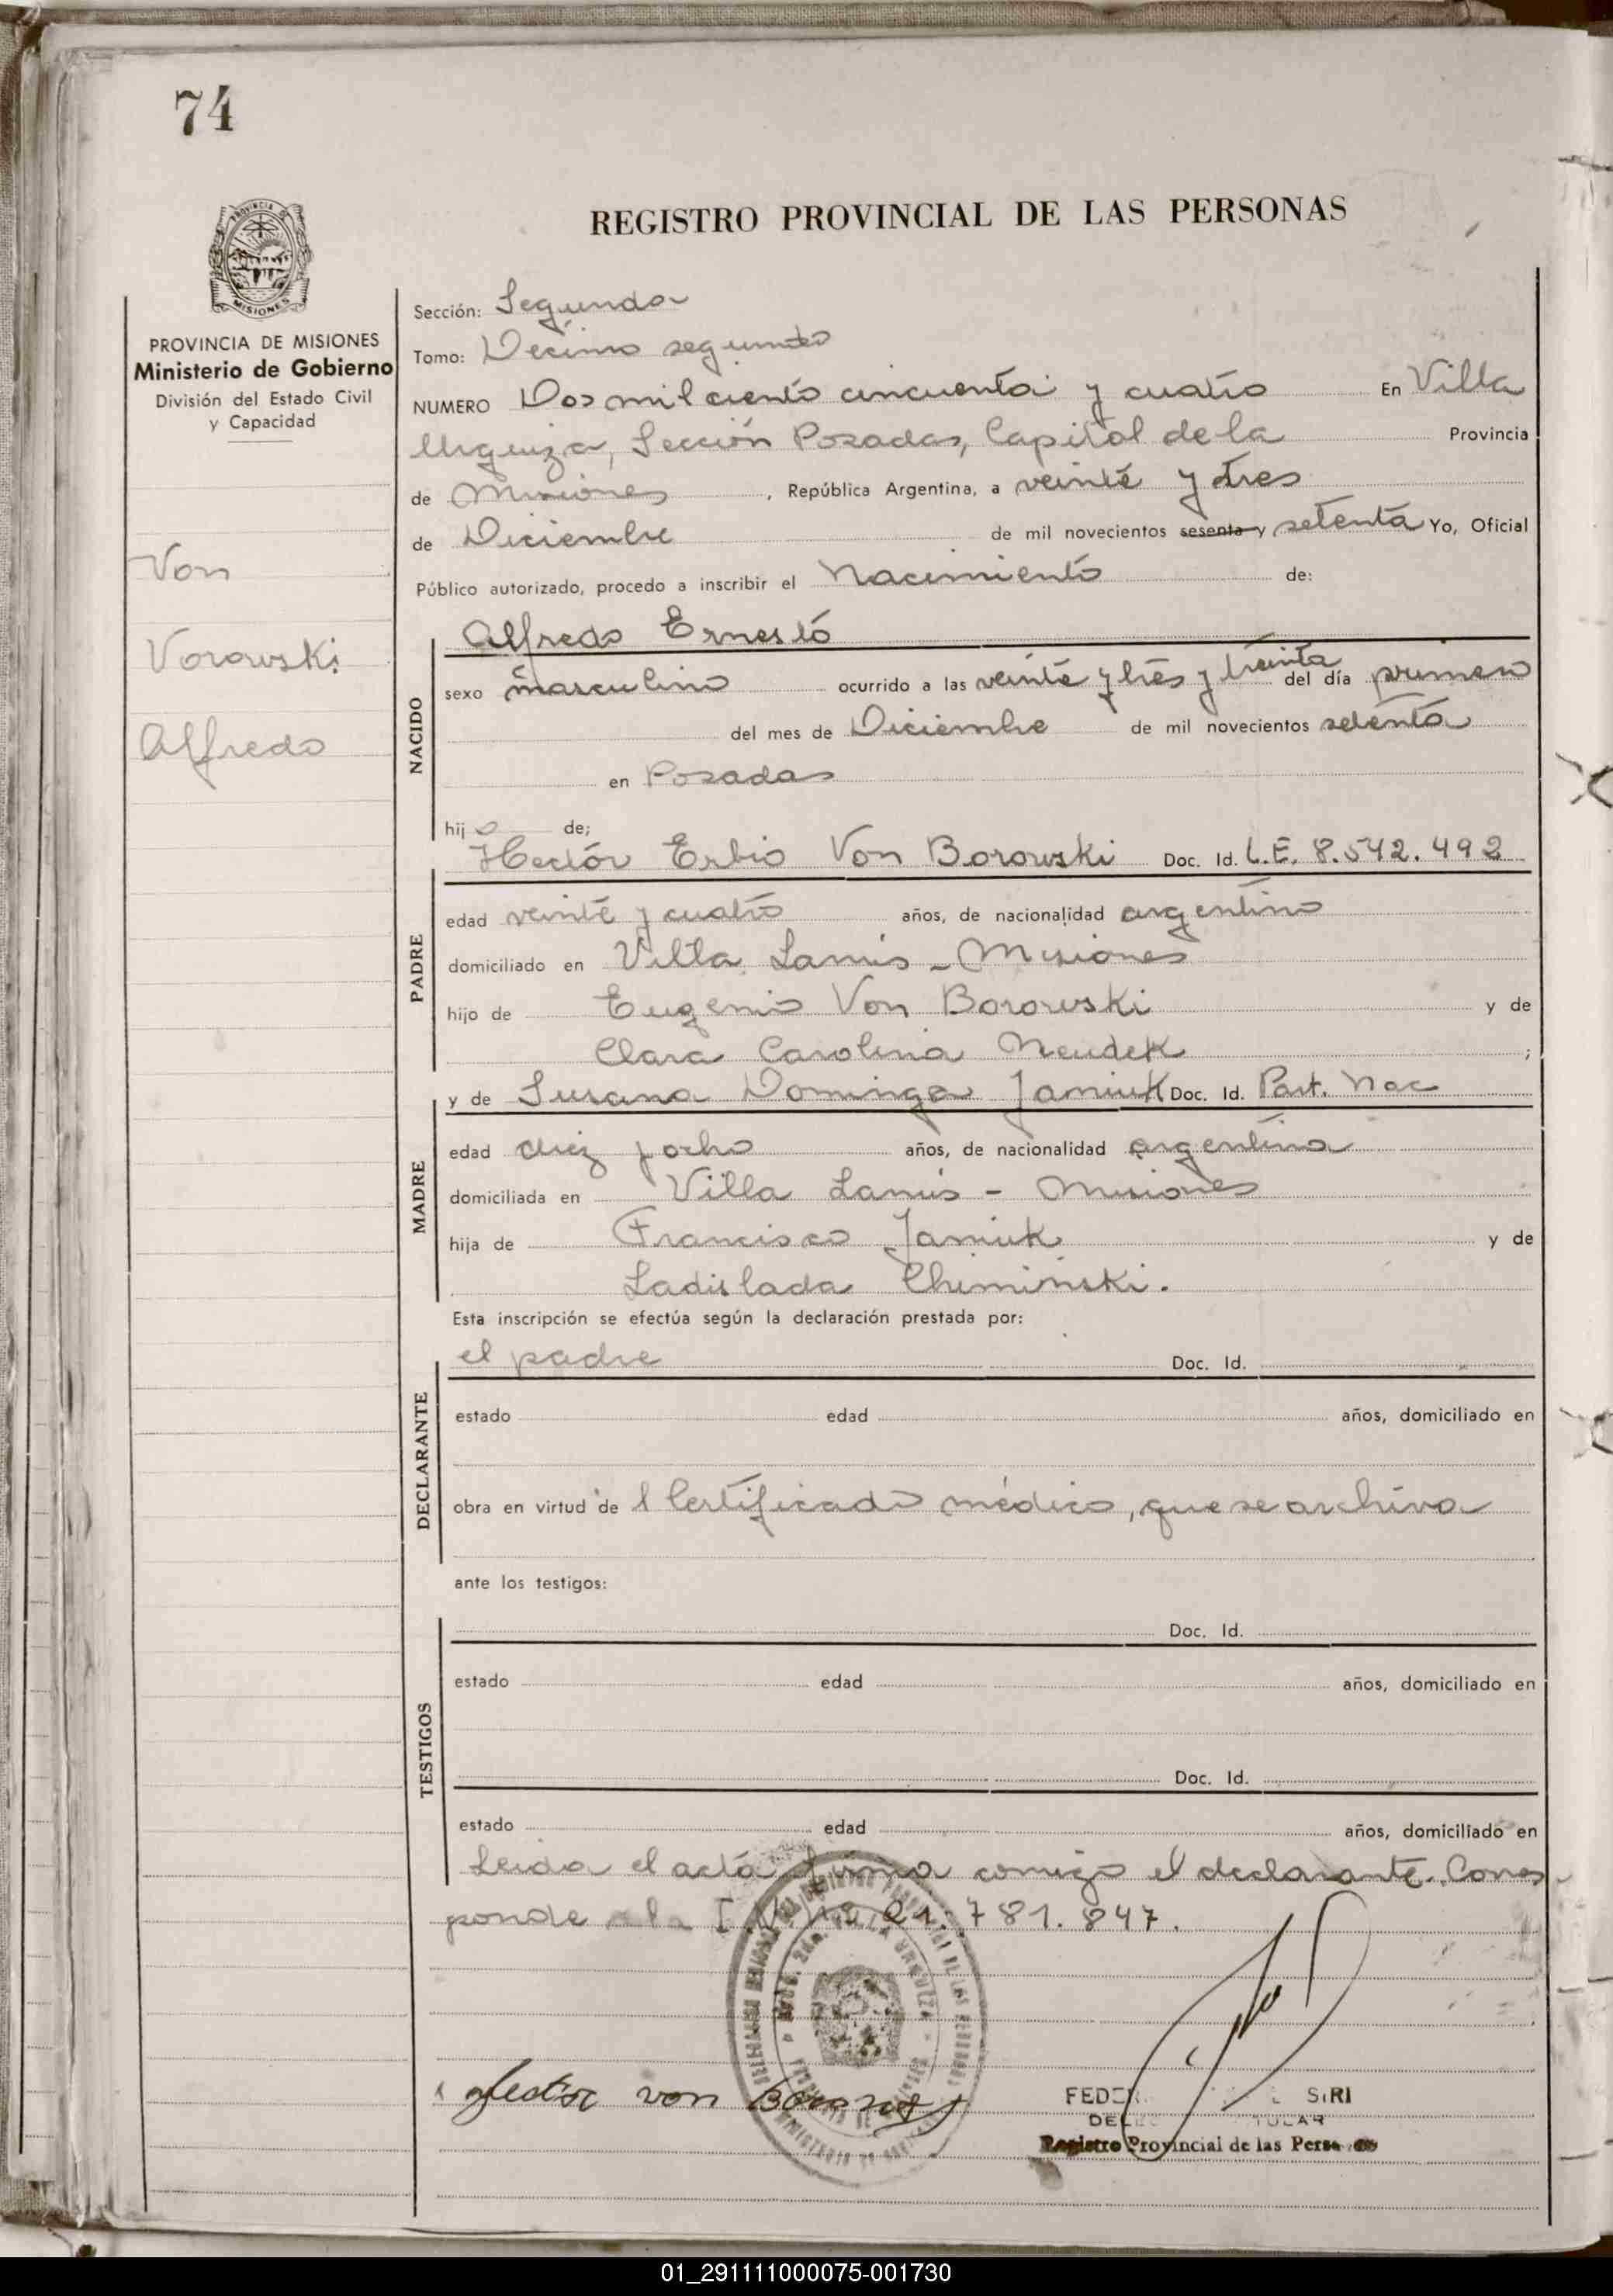 74
REGISTRO PROVINCIAL DE LAS PERSONAS
PROVINCIA DE
MISIONES
PROVINCIA DE MISIONES
Ministerio de Gobierno
División del Estado Civil
y Capacidad
Von
Vorowski
Alfredo
Sección: Segunda
Tomo: Décimo segundo
NUMERO Dos mil ciento cincuenta y cuatro En Villa
Urquiza, Sección Posadas, Capital de la Provincia
de Misiones, República Argentina, a veinte y tres
de Diciembre de mil novecientos sesenta y setenta Yo, Oficial
Público autorizado, procedo a inscribir el Nacimiento de:
Alfredo Ernesto
NACIDO
sexo masculino ocurrido a las veinte y tres y treinta del día primero
del mes de Diciembre de mil novecientos setenta
en Posadas
hijo de;
Hector Erbio Von Borowski Doc. Id. L.E. 8.542.492
PADRE
edad veinte y cuatro años, de nacionalidad argentino
domiciliado en Villa Lanús - Misiones
hijo de Eugenio Von Borowski y de
Clara Carolina Neudek ;
y de Susana Dominga Janiuk Doc. Id. Part. Nac
MADRE
edad diez y ocho años, de nacionalidad argentina
domiciliada en Villa Lanús - Misiones
hija de Francisco Janiuk y de
Ladislada Chiminski.
Esta inscripción se efectúa según la declaración prestada por:
el padre Doc. Id.
DECLARANTE
estado edad años, domiciliado en
obra en virtud de l Certificado médico, que se archiva
ante los testigos:
Doc. Id.
TESTIGOS
estado edad años, domiciliado en
Doc. Id.
estado edad años, domiciliado en
Leida el acta firma conmigo el declarante. Corres
ponde a la I.N. Nº 21.781.847.
Hector von
FEDE SIRI
DELE TULAR
Registro Provincial de las Personas
01_291111000075-001730